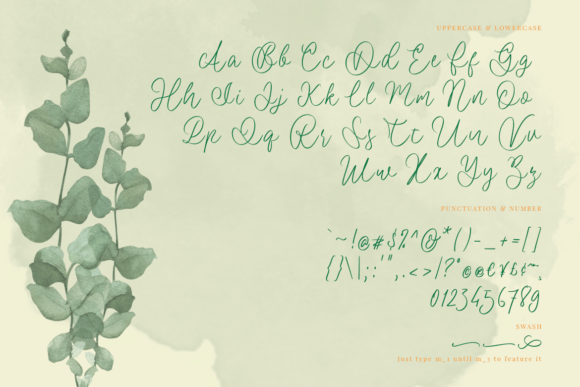 UPPERCASE & LOWERCASE
Aa Bb Cc Dd Ee Ff Gg
Hh Ii Jj Kk Ll Mm Nn Oo
Pp Qq Rr Ss Tt Uu Vv
Ww Xx Yy Zz
PUNCTUATION & NUMBER
`~!@#$%^&*()-_+=[]
{}\|;:'",.<>/?
0123456789
SWASH
Just type m_1 until m_3 to feature it